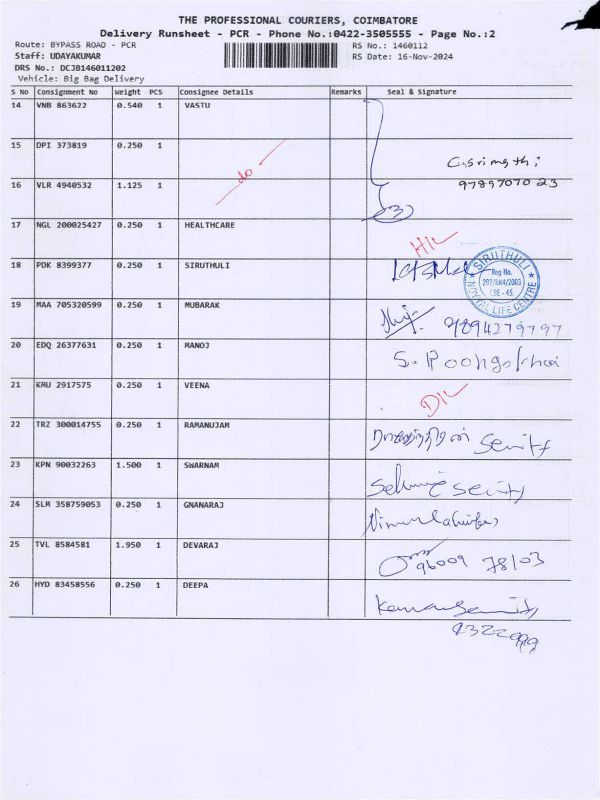 THE PROFESSIONAL COURIERS, COIMBATORE
Delivery Runsheet - PCR - Phone No.:0422-3505555 - Page No.:2
Route: BYPASS ROAD - PCR
RS No.: 1460112
Staff: UDAYAKUMAR
RS Date: 16-Nov-2024
DRS No.: DCJB146011202
Vehicle: Big Bag Delivery
S No Consignment No Weight PCS Consignee Details Remarks Seal & Signature
14 VNB 863622 0.540 1 VASTU
15 DPI 373819 0.250 1
do
9789707023
16 VLR 4940532 1.125 1
17 NGL 200025427 0.250 1 HEALTHCARE
18 PDK 8399377 0.250 1 SIRUTHULI
SIRUTHULI
Reg No.
202/BK4/2003
CBE - 45.
NOYYAL LIFE CENTRE
19 MAA 705320599 0.250 1 MUBARAK
9894279797
20 EDQ 26377631 0.250 1 MANOJ
21 KMU 2917575 0.250 1 VEENA
22 TRZ 300014755 0.250 1 RAMANUJAM
23 KPN 90032263 1.500 1 SWARNAM
24 SLM 358759053 0.250 1 GNANARAJ
25 TVL 8584581 1.950 1 DEVARAJ
96009 78103
26 HYD 83458556 0.250 1 DEEPA